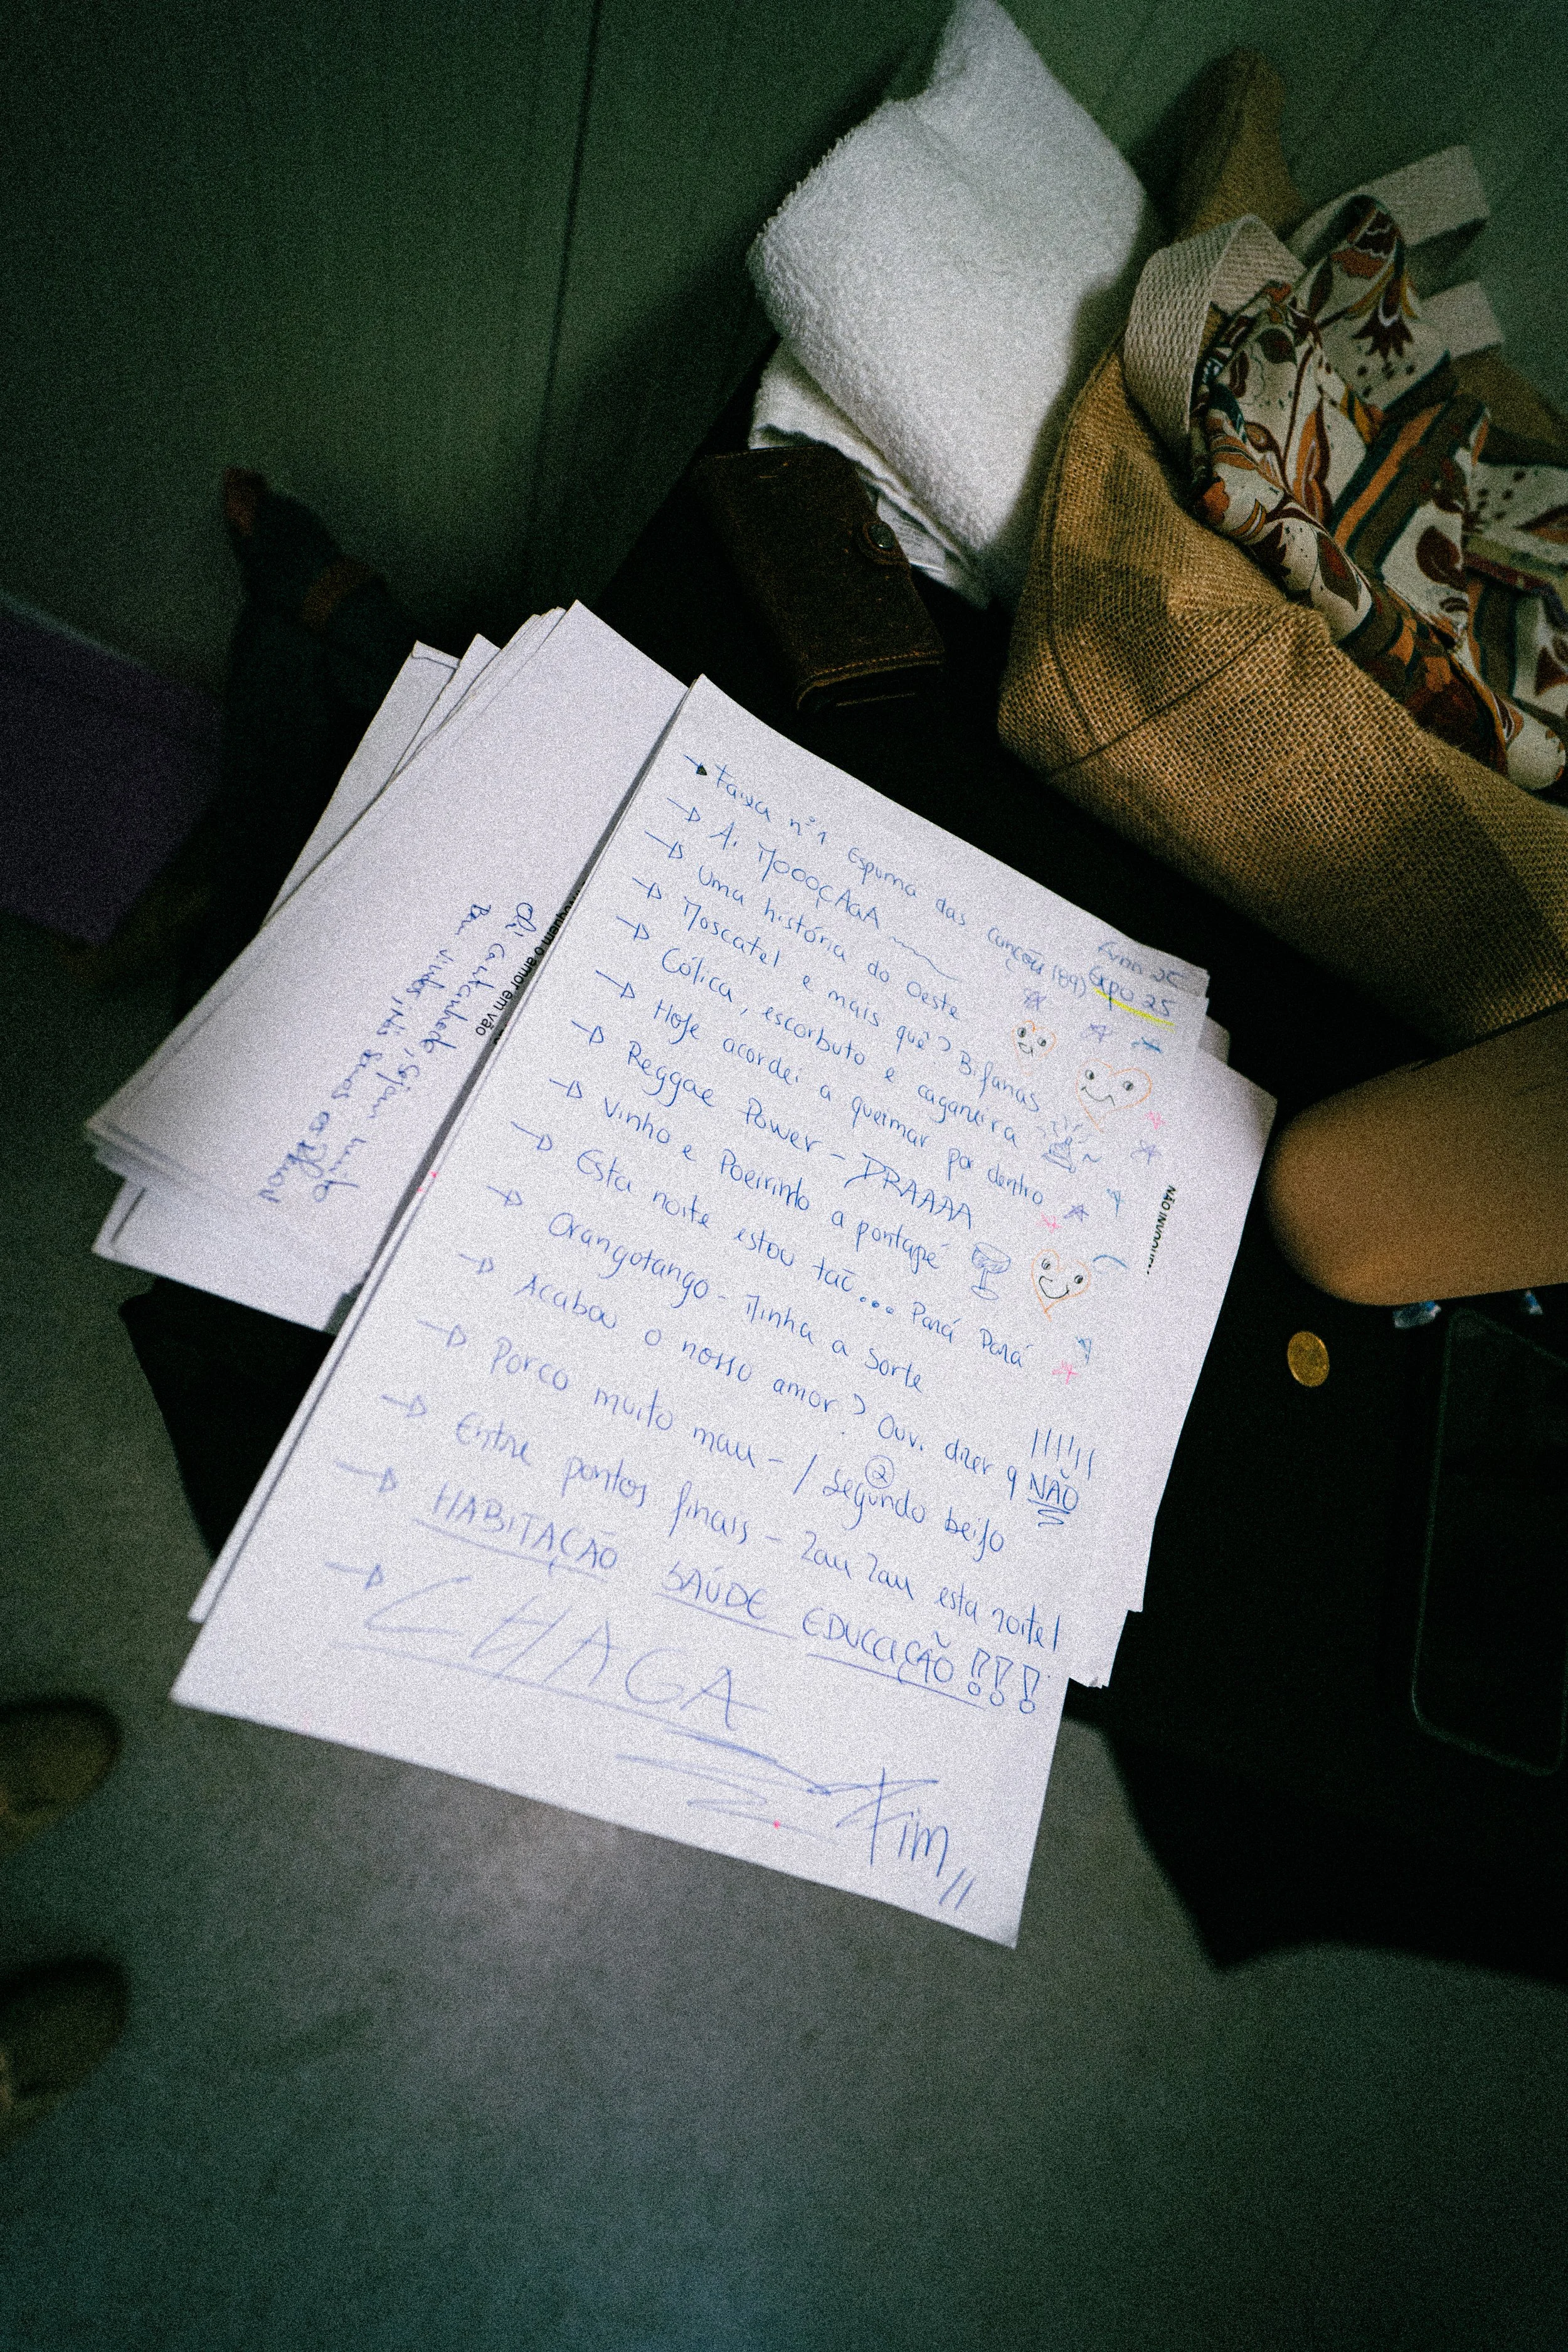 Faixa nº1 Espuma das canções (89)
Expo 25
Ai MOOOÇAGA
Uma história do Oeste
Moscatel e mais quê? Bifanas
Cólica, escorbuto e caganeira
Hoje acordei a queimar por dentro
Reggae Power - DRAAAA
Vinho e Poeirinto a pontapé
Esta noite estou tão... Pará Pará
Orangotango - Minha a sorte
Acabou o nosso amor? Ouvi dizer q NÃO !!!!!!
Porco muito mau - / segundo beijo
2
Entre pontos finais - Zau Zau esta noite!
HABITAÇÃO SAÚDE EDUCAÇÃO!!!
CHAGA
Fim //
NÃO INV
oquem o amor em vão
Oi Cartaxinho, sejam muito
Bem vindos, nós somos os